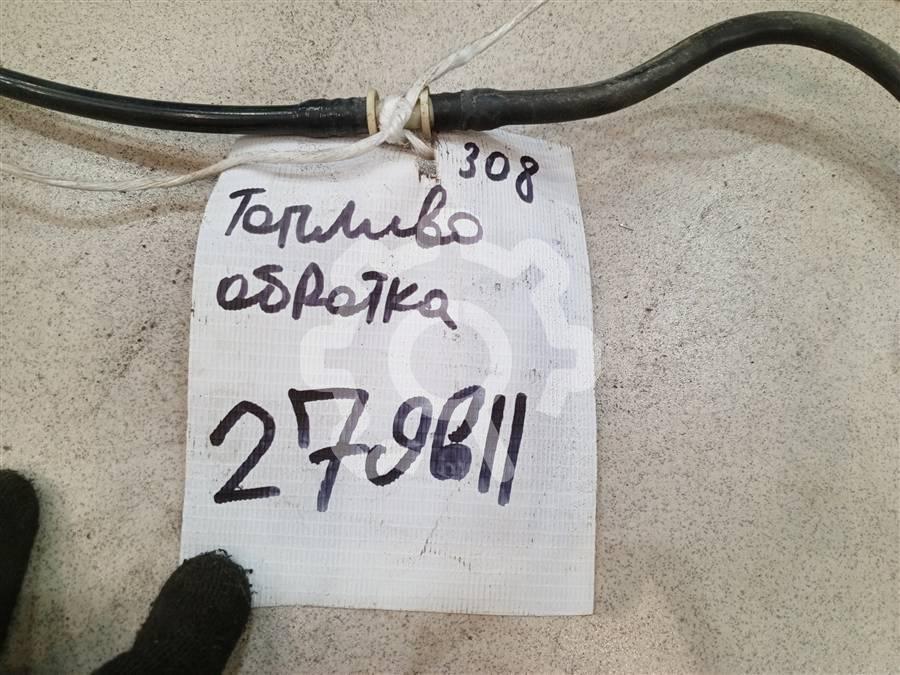 308
Топливо
обратка
279811